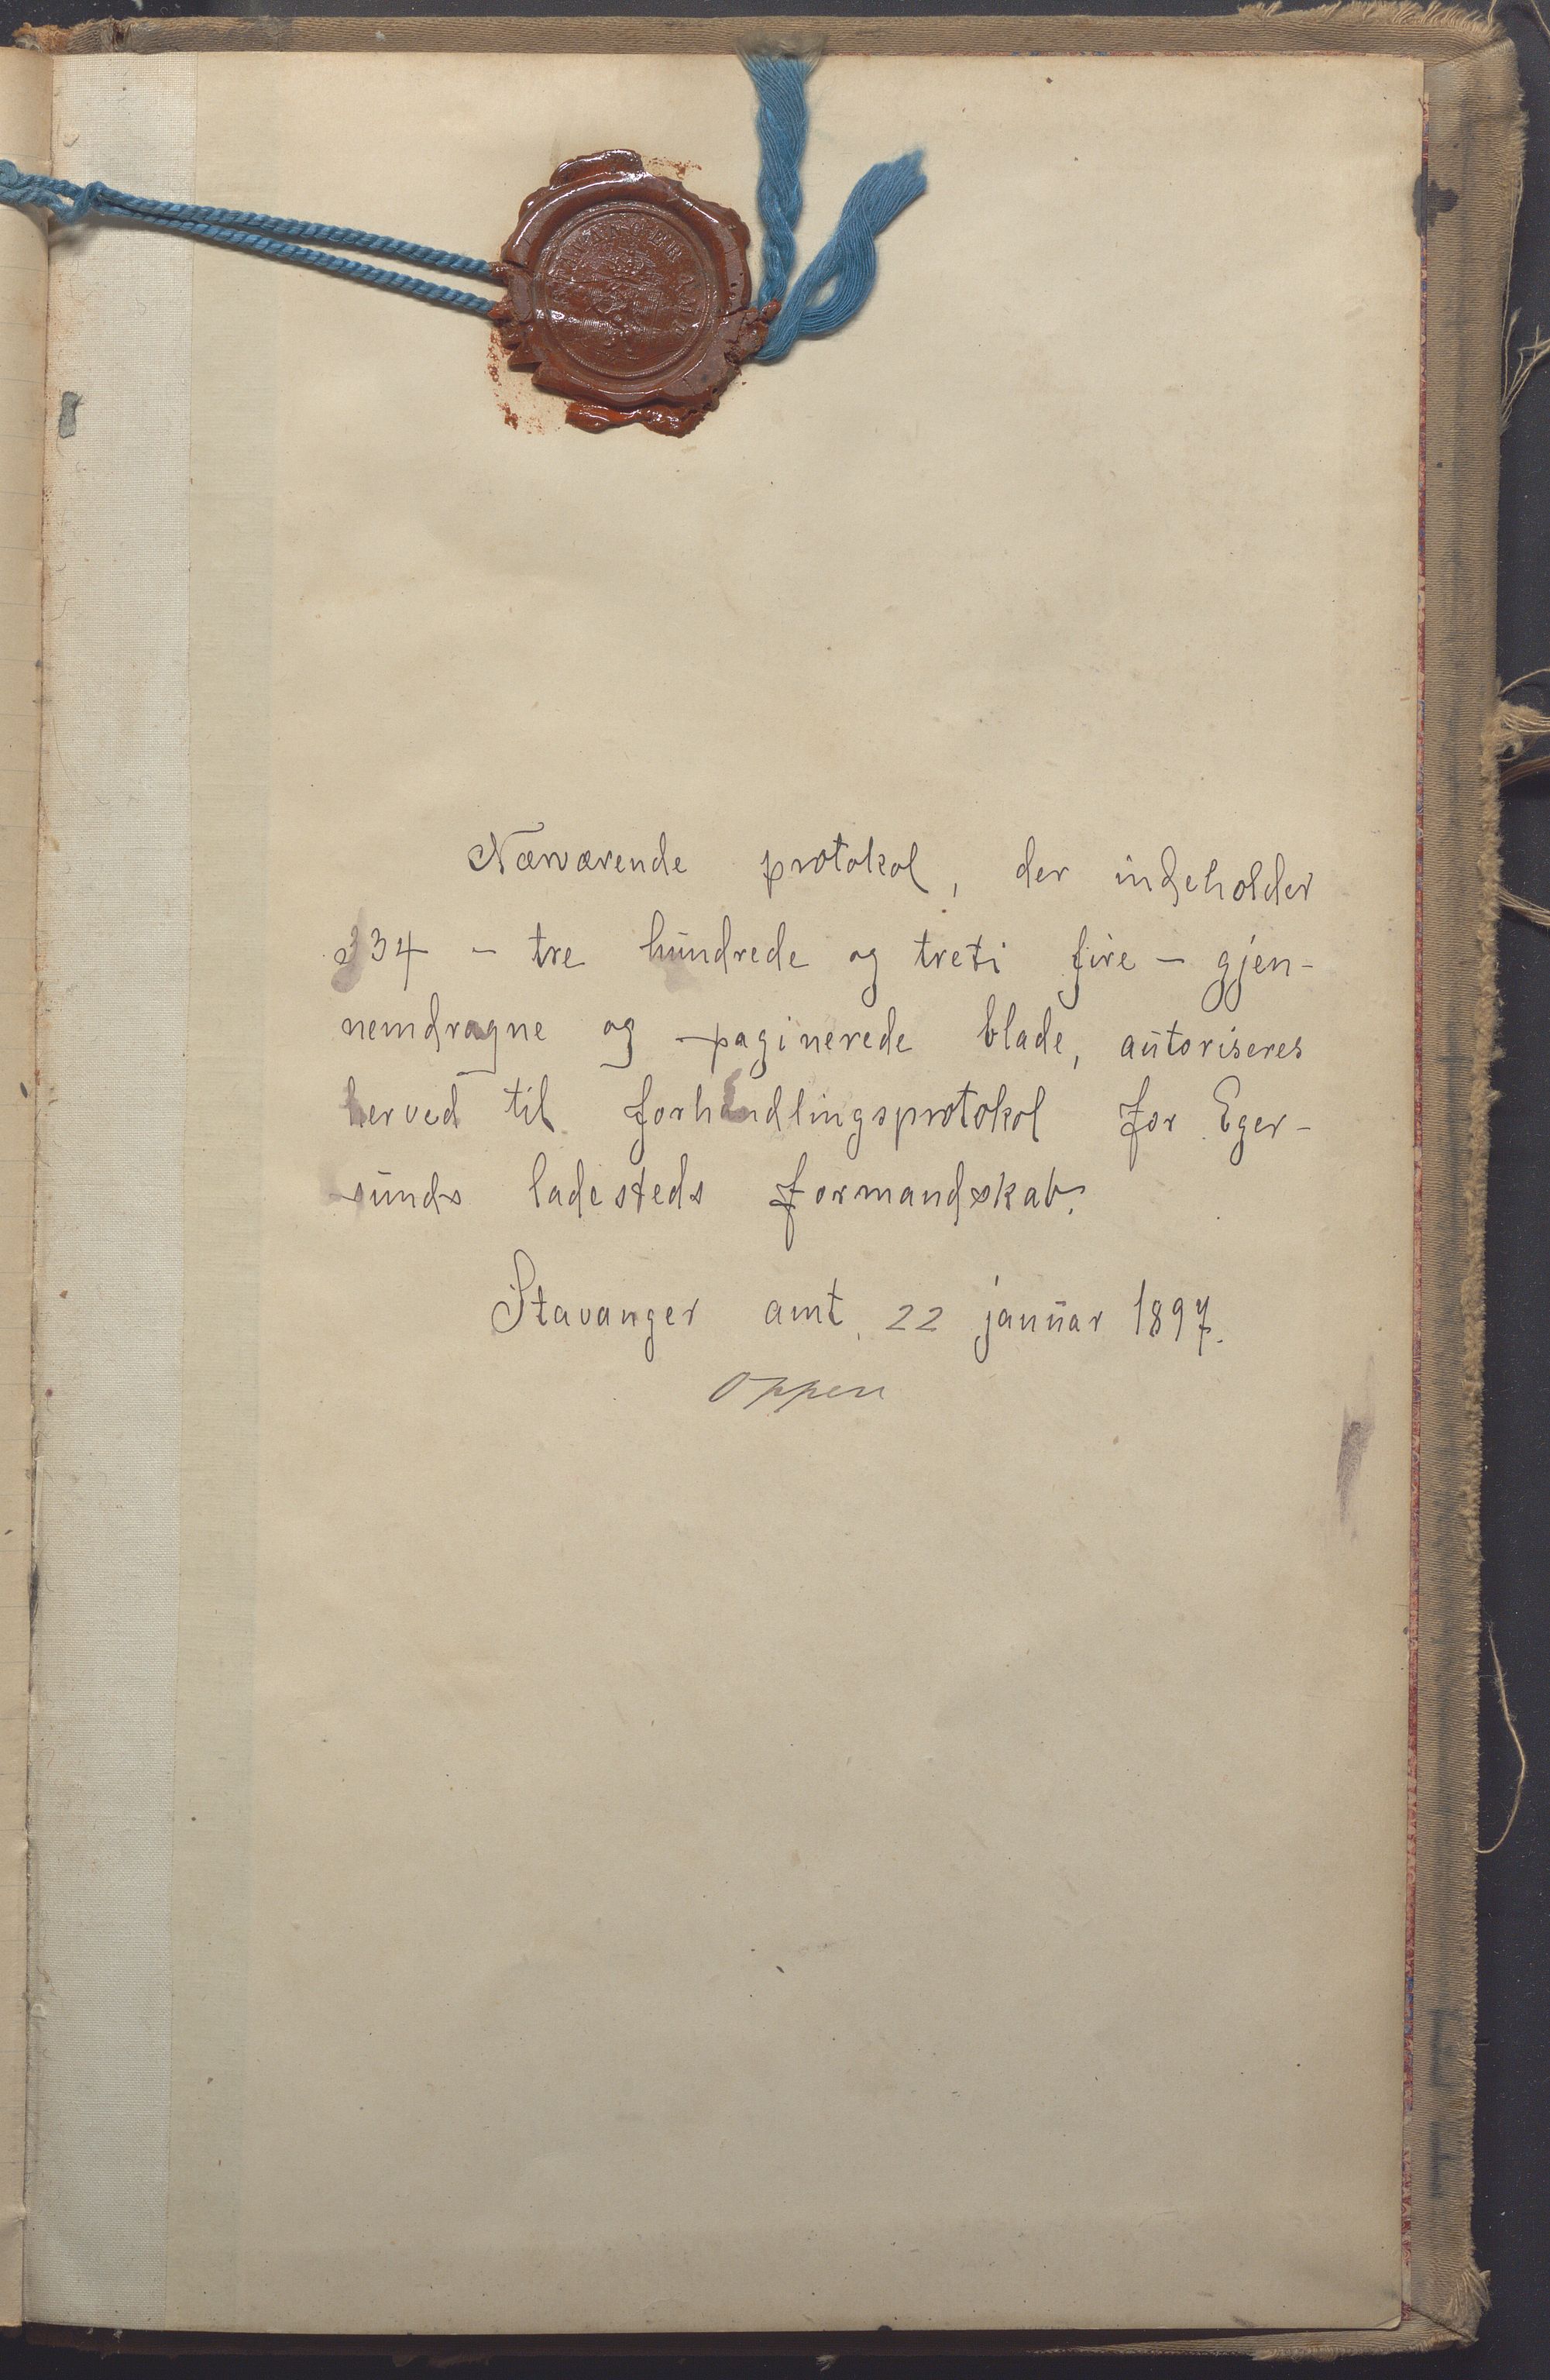 STAVANGER AMT
Nærværende protokol, der indeholder
334 - tre hundrede og treti fire - gjen-
nemdragne og paginerede blade, autoriseres
herved til forhandlingsprotokol for Eger-
sunds ladesteds formandskab.
Stavanger amt, 22 januar 1897.
Oppen